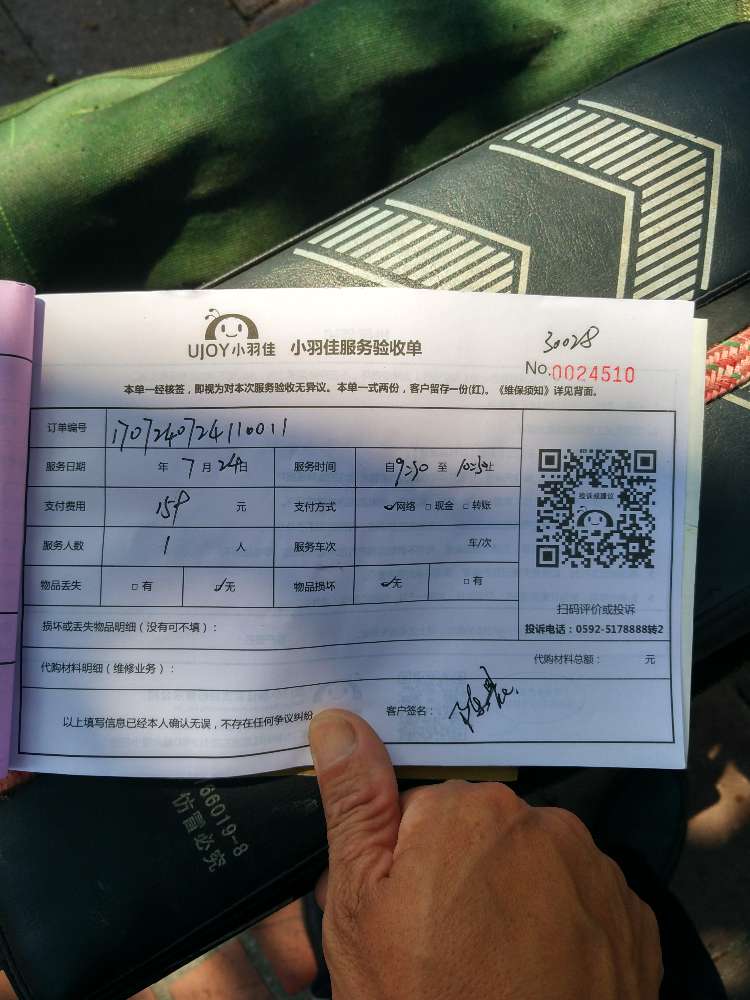 UJOY小羽佳 小羽佳服务验收单
30028
No.0024510
本单一经核签，即视为对本次服务验收无异议。本单一式两份，客户留存一份(红)。《维保须知》详见背面。
订单编号 1707240724110011
服务日期 年 7 月 24 日 服务时间 自 9:30 至 10:30 止
支付费用 159 元 支付方式 ☑网络 □现金 □转账
服务人数 1 人 服务车次 车/次
物品丢失 □有 ☑无 物品损坏 ☑无 □有
投诉或建议
扫码评价或投诉
投诉电话：0592-5178888转2
损坏或丢失物品明细（没有可不填）：
代购材料明细（维修业务）： 代购材料总额： 元
以上填写信息已经本人确认无误，不存在任何争议纠纷 客户签名：
66019-8
仿冒必究